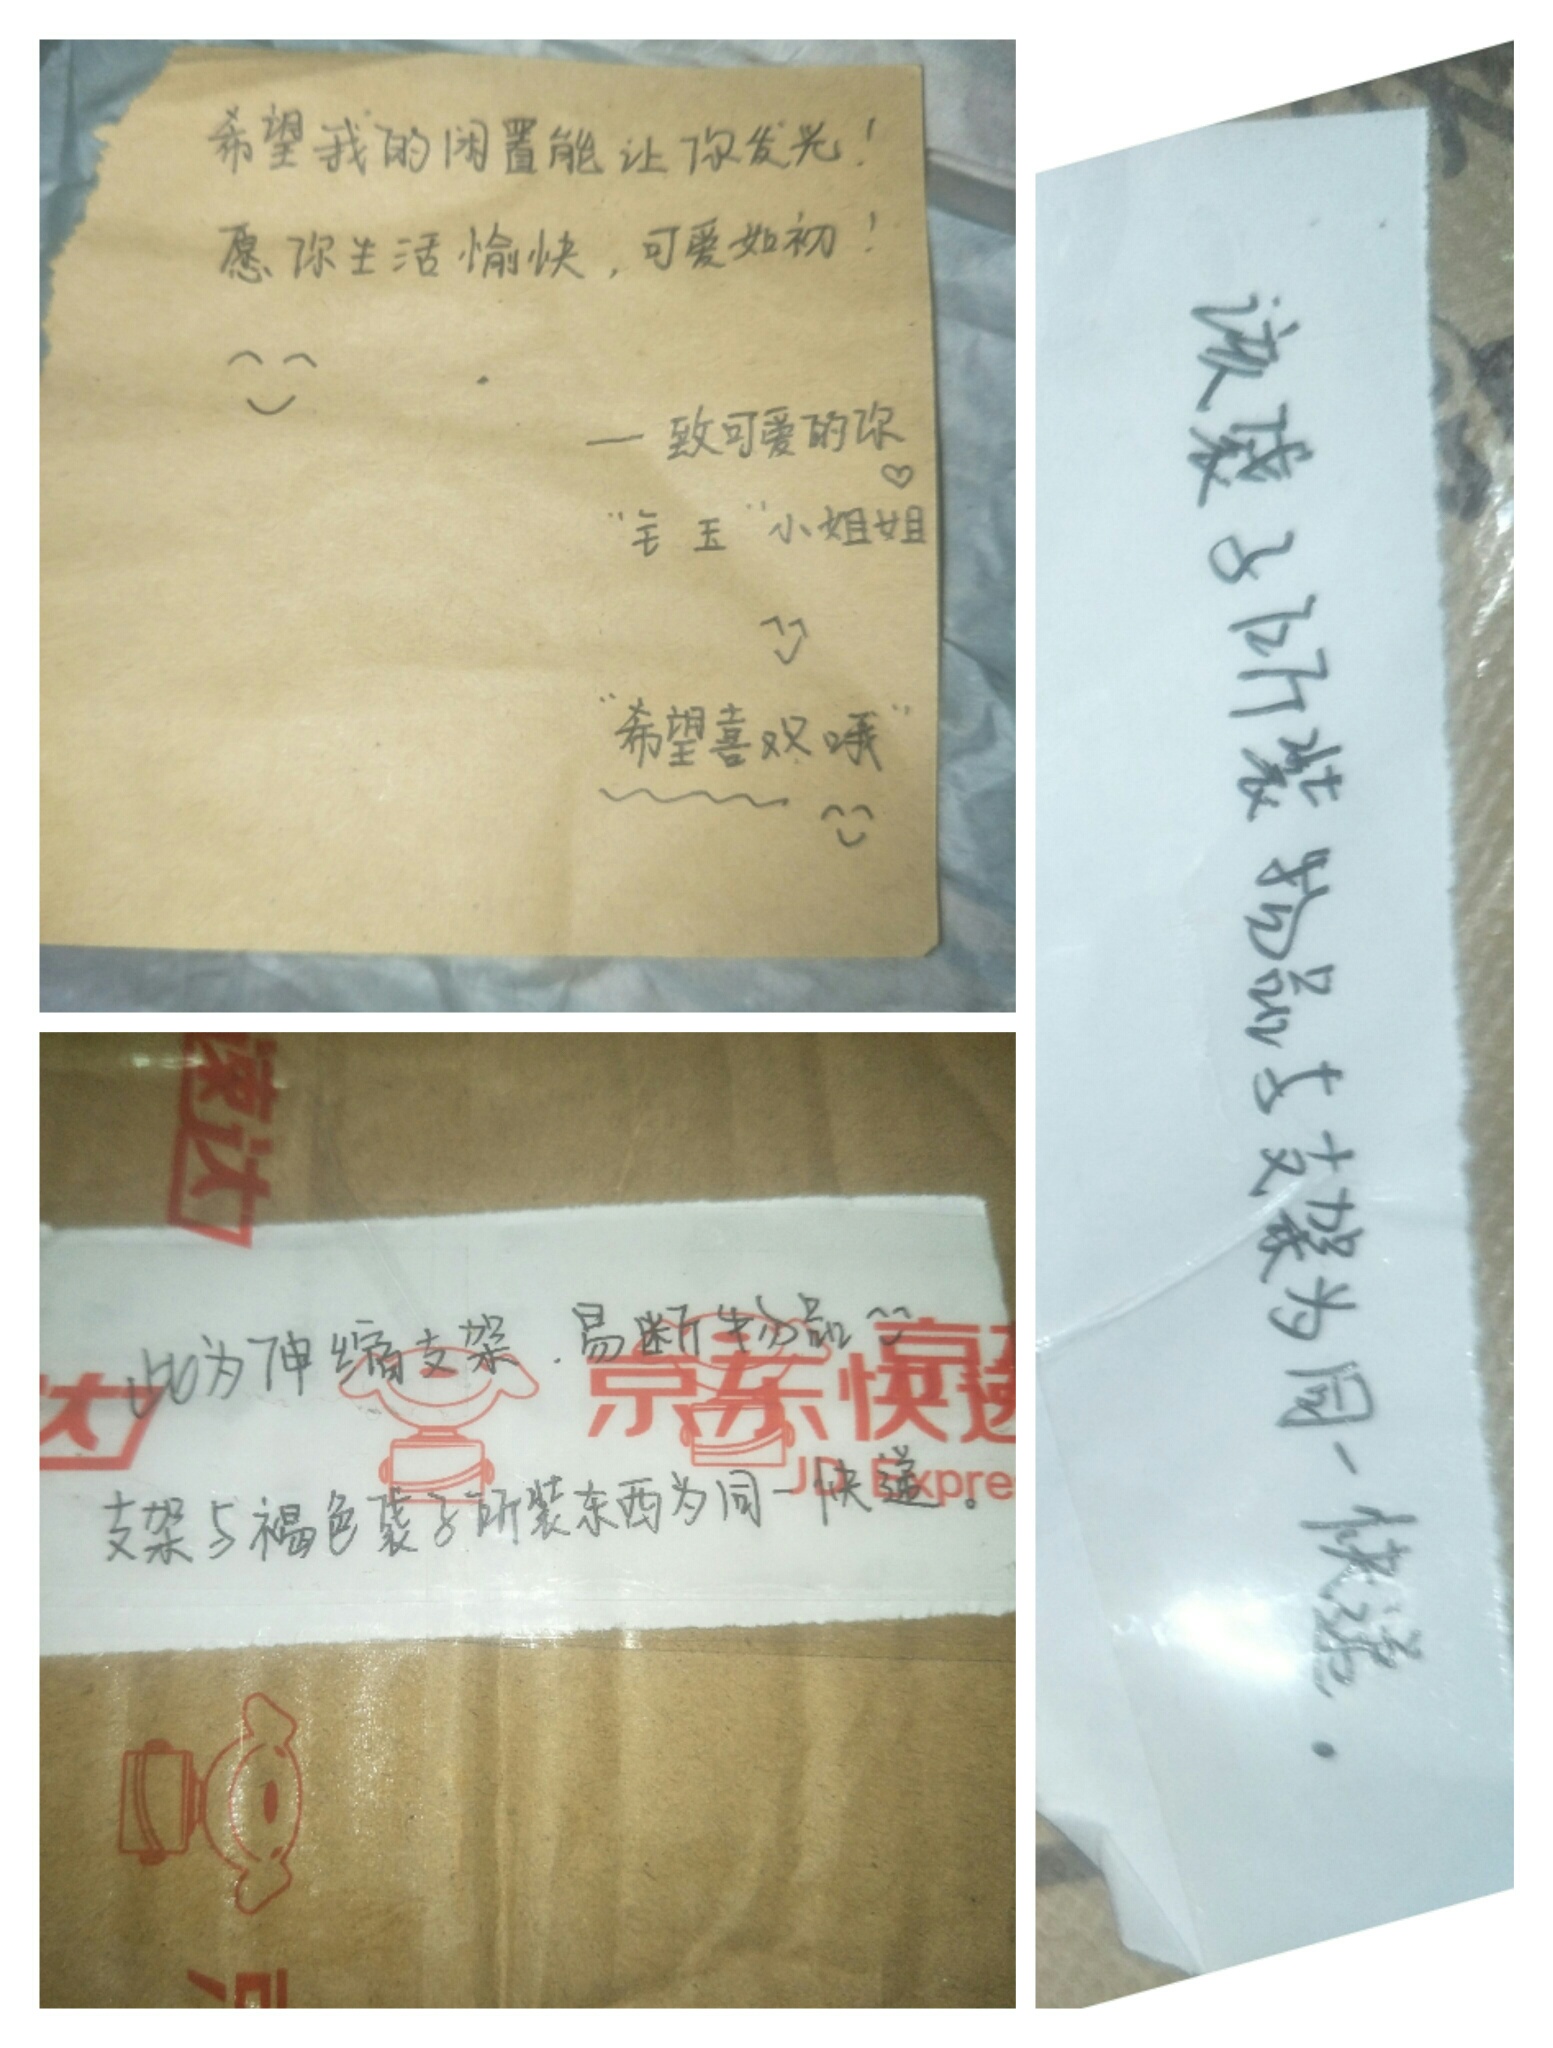 希望我的闲置能让你发光！
愿你生活愉快，可爱如初！
— 致可爱的你
"毛 玉"小姐姐
"希望喜欢哦"
速达
此为伸缩支架.易断物品
京东快递
JD Expre
支架与褐色袋子所装东西为同一快递。
达
该袋子所装物品与支架为同一快递.